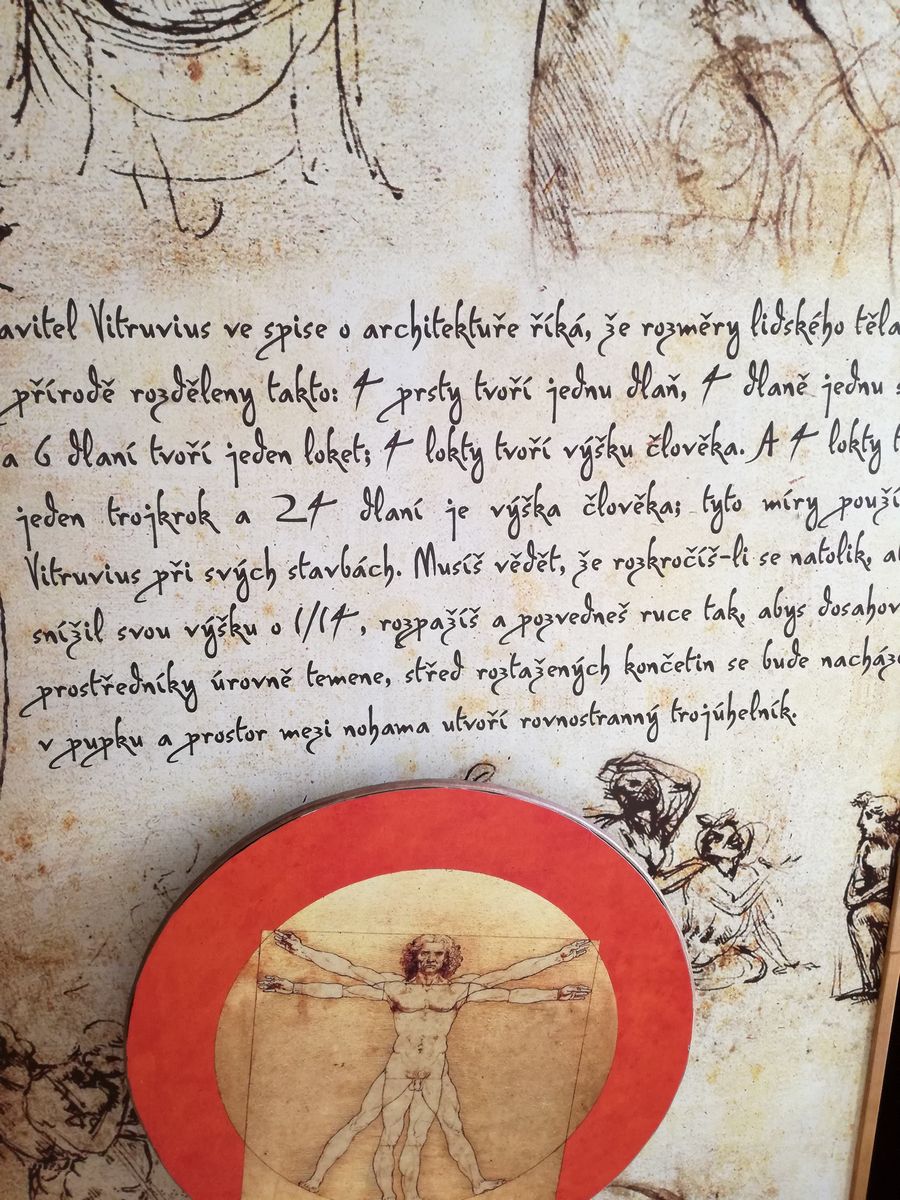 avitel Vitruvius ve spise o architektuře říká, že rozměry lidského těla
přírodě rozděleny takto: 4 prsty tvoří jednu dlaň, 4 dlaně jednu s
a 6 dlaní tvoří jeden loket; 4 lokty tvoří výšku člověka. A 4 lokty t
jeden trojkrok a 24 dlaní je výška člověka; tyto míry použí
Vitruvius při svých stavbách. Musíš vědět, že rozkročíš-li se natolik, a
snížil svou výšku o 1/14, rozpažíš a pozvedneš ruce tak, abys dosahov
prostředníky úrovně temene, střed roztažených končetin se bude nacház
v pupku a prostor mezi nohama utvoří rovnostranný trojúhelník.